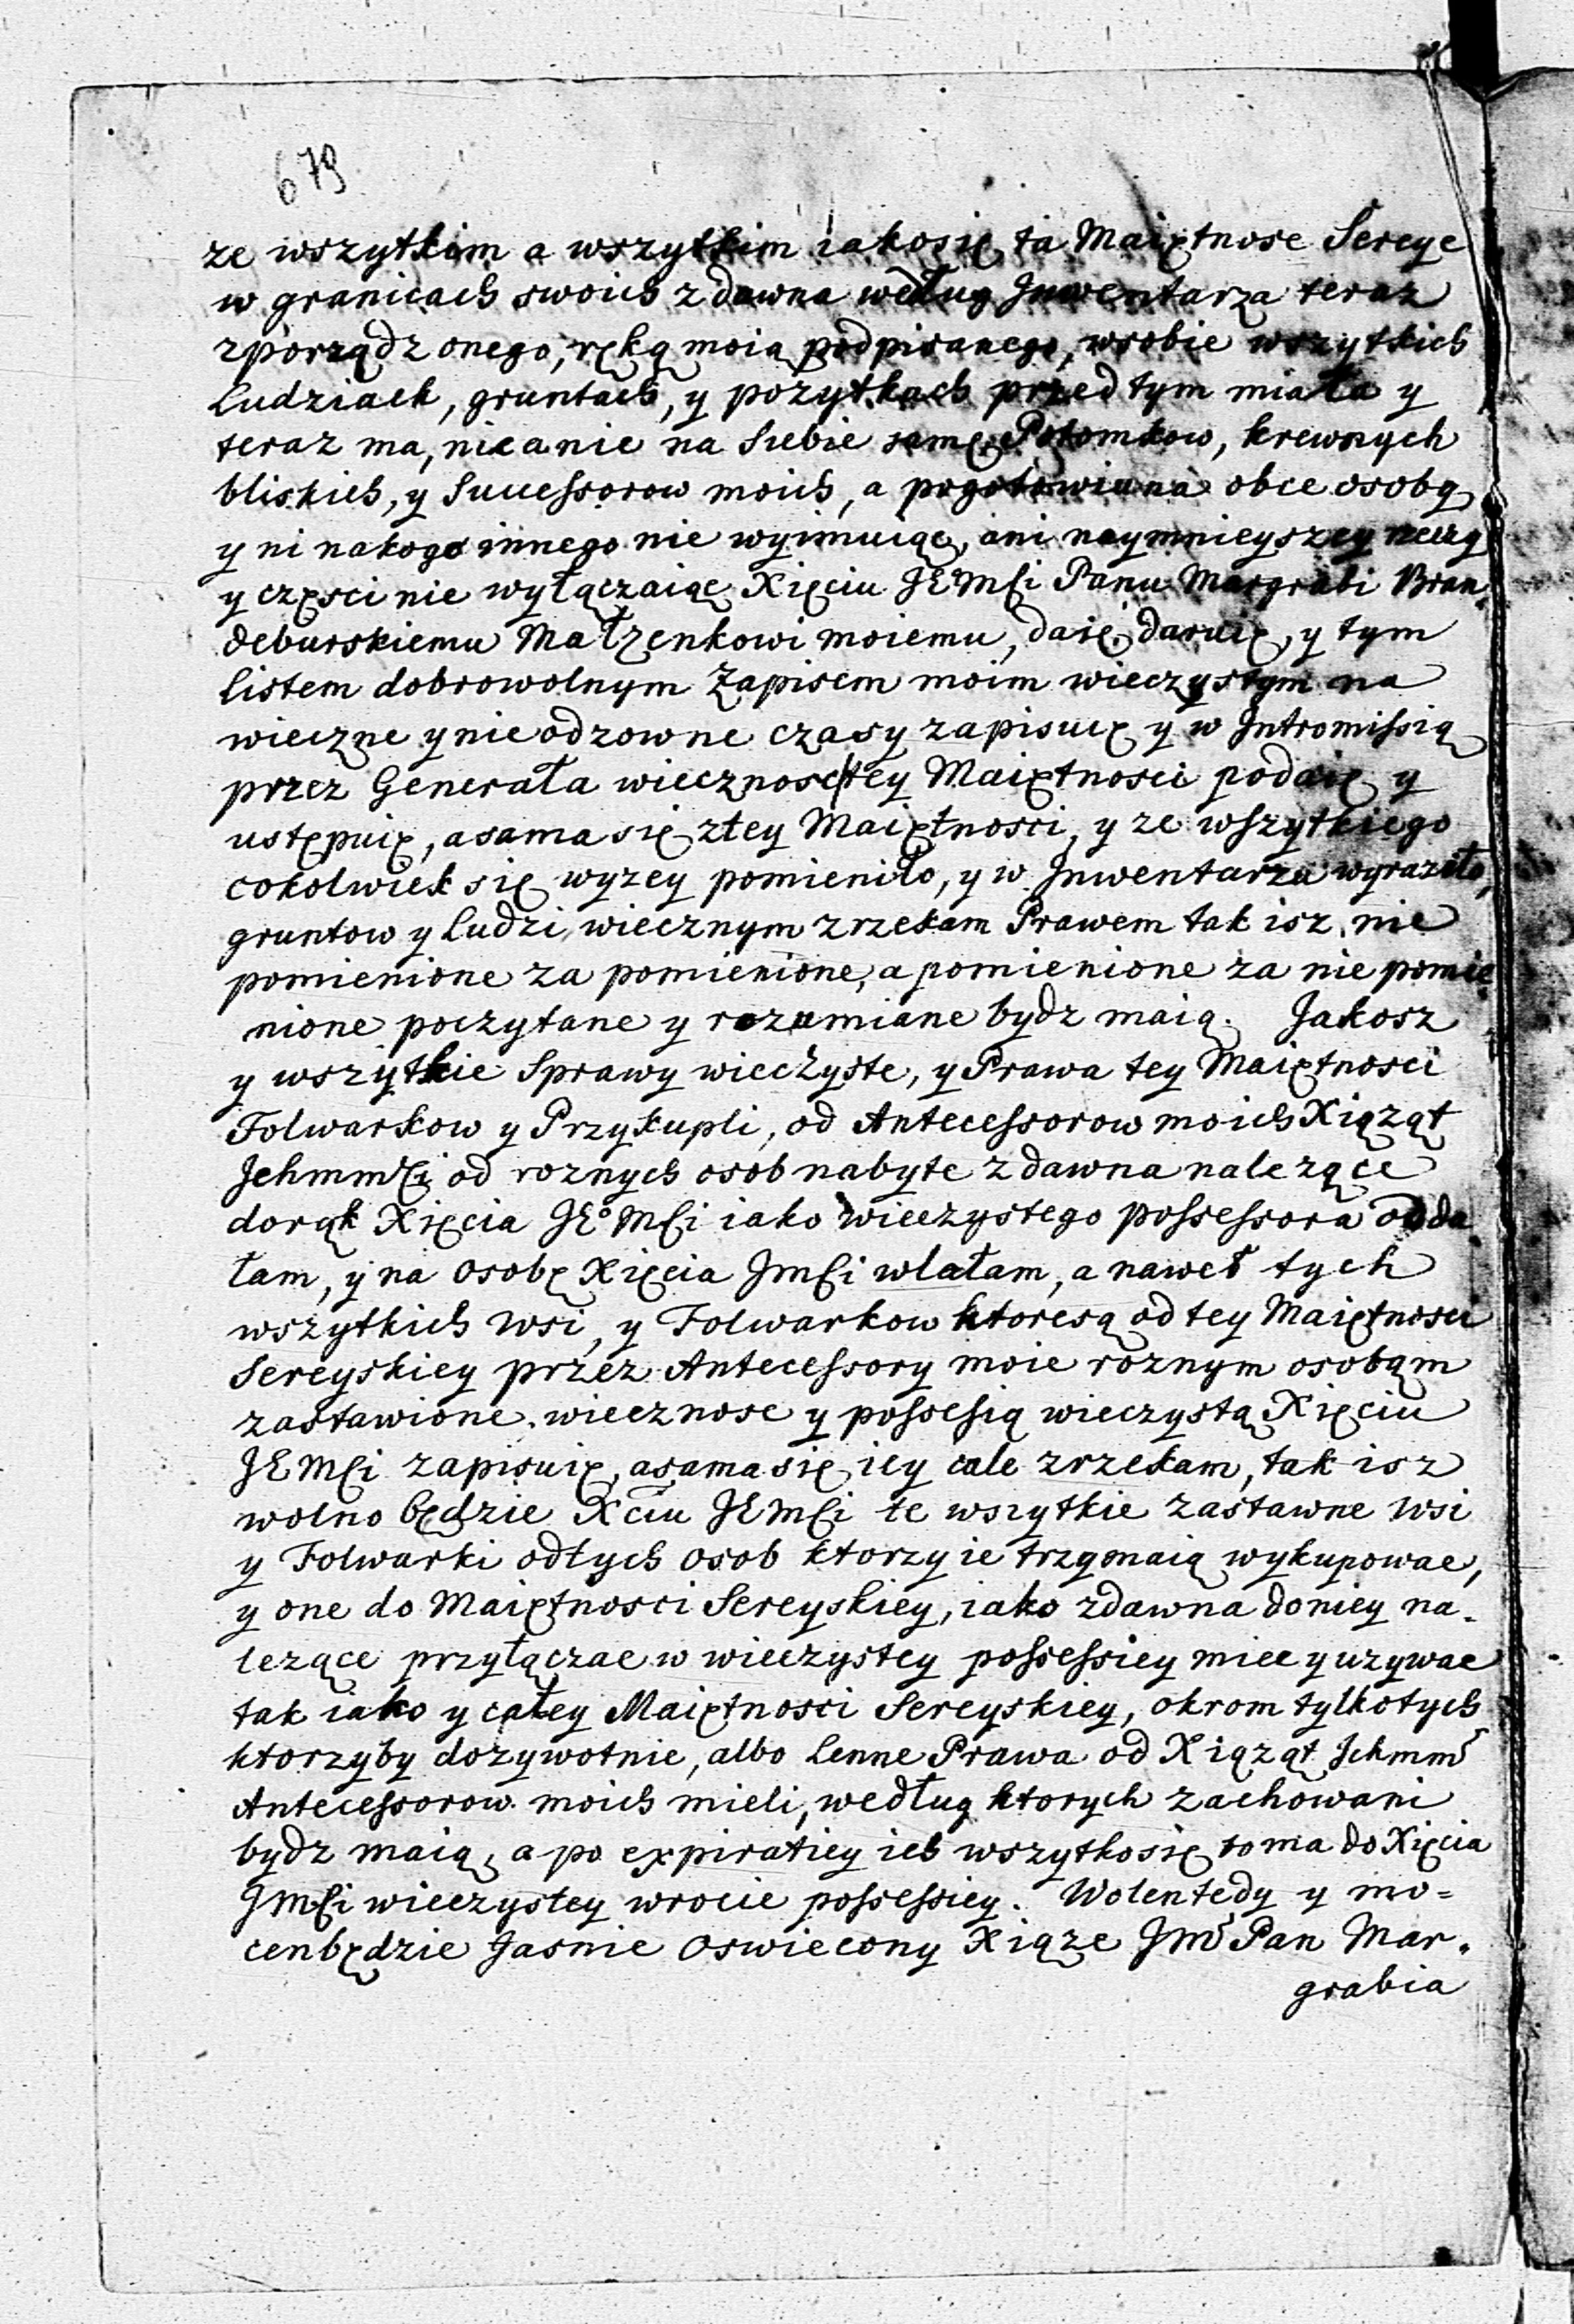 679
ze wszytkim a wszytkim iakosię ta Maiętnosc Sereye
w granicach swoich zdawna według Inwentarza teraz
zporządzonego, ręką moią podpisanego, wsobie wszytkich
Ludziach, gruntach, y pozytkach przed tym miała y
teraz ma, nicanie na Siebie samę Potomkow, krewnych
bliskich, y Successorow moich, a pogotowiu na obce osoby
y ni nakogo innego nie wyimuiąc, ani naymnieyszey rzeczy
y częsci nie wyłączaiąc Xięciu JEMCi Panu Margrabi Bran-
deburskiemu Małzenkowi moiemu, daię, daruię, y tym
listem dobrowolnym Zapisem moim wieczystym na
wieczne y nie odzowne czasy zapisuię y w Intromissią
przez Generała wiecznosc tey Maiętnosci podaię y
ustępuię, asama się ztey Maiętnosci, y ze wszytkiego
cokolwiek się wyzey pomieniło, y w Inwentarzu wyraziło,
gruntow y ludzi, wiecznym zrzekam Prawem tak isz nie
pomienione za pomienione, a pomienione za nie pomie
nione poczytane y rozumiane bydz maią. Jakosz
y wszytkie Sprawy wieczyste, y Prawa tey Maiętnosci
Folwarkow y Przykupli, od Antecessorow moich Xiąząt
Jchmmci od roznych osob nabyte zdawna nalezące
dorąk Xięcia JEo MCi iako wieczystego possessora odda
łam, y na osobę Xięcia JmCi wlałam, a nawet tych
wszytkich wsi, y Folwarkow ktoresą od tey Maiętnosci
Sereyskiey przez Antecessory moie roznym osobąm
zastawione. wiecznosc y possesią wieczystą Xięciu
JEMCi zapisuię, asama się iey cale zrzekam, tak isz
wolno będzie Xciu JEMCi te wszytkie zastawne Wsi
y Folwarki odtych osob ktorzy ie trzymaią wykupowac,
y one do Maiętnosci Sereyskiey, iako zdawna doniey na-
lezące przyłączac w wieczystey possessiey miec y uzywac
tak iako y całey Maiętnosci Sereyskiey, okrom tylkotych
ktorzyby dozywotnie, albo Lenne Prawa od Xiąząt Jchmm
Antecessorow moich mieli, według ktorych zachowani
bydz maią, a po expiratiey ich wszytkosię to ma do Xięcia
JmCi wieczystey wrocic possessiey. Wolentedy y mo=
cenbędzie Jasnie Oswiecony Xiąze Jm Pan Mar-
grabia